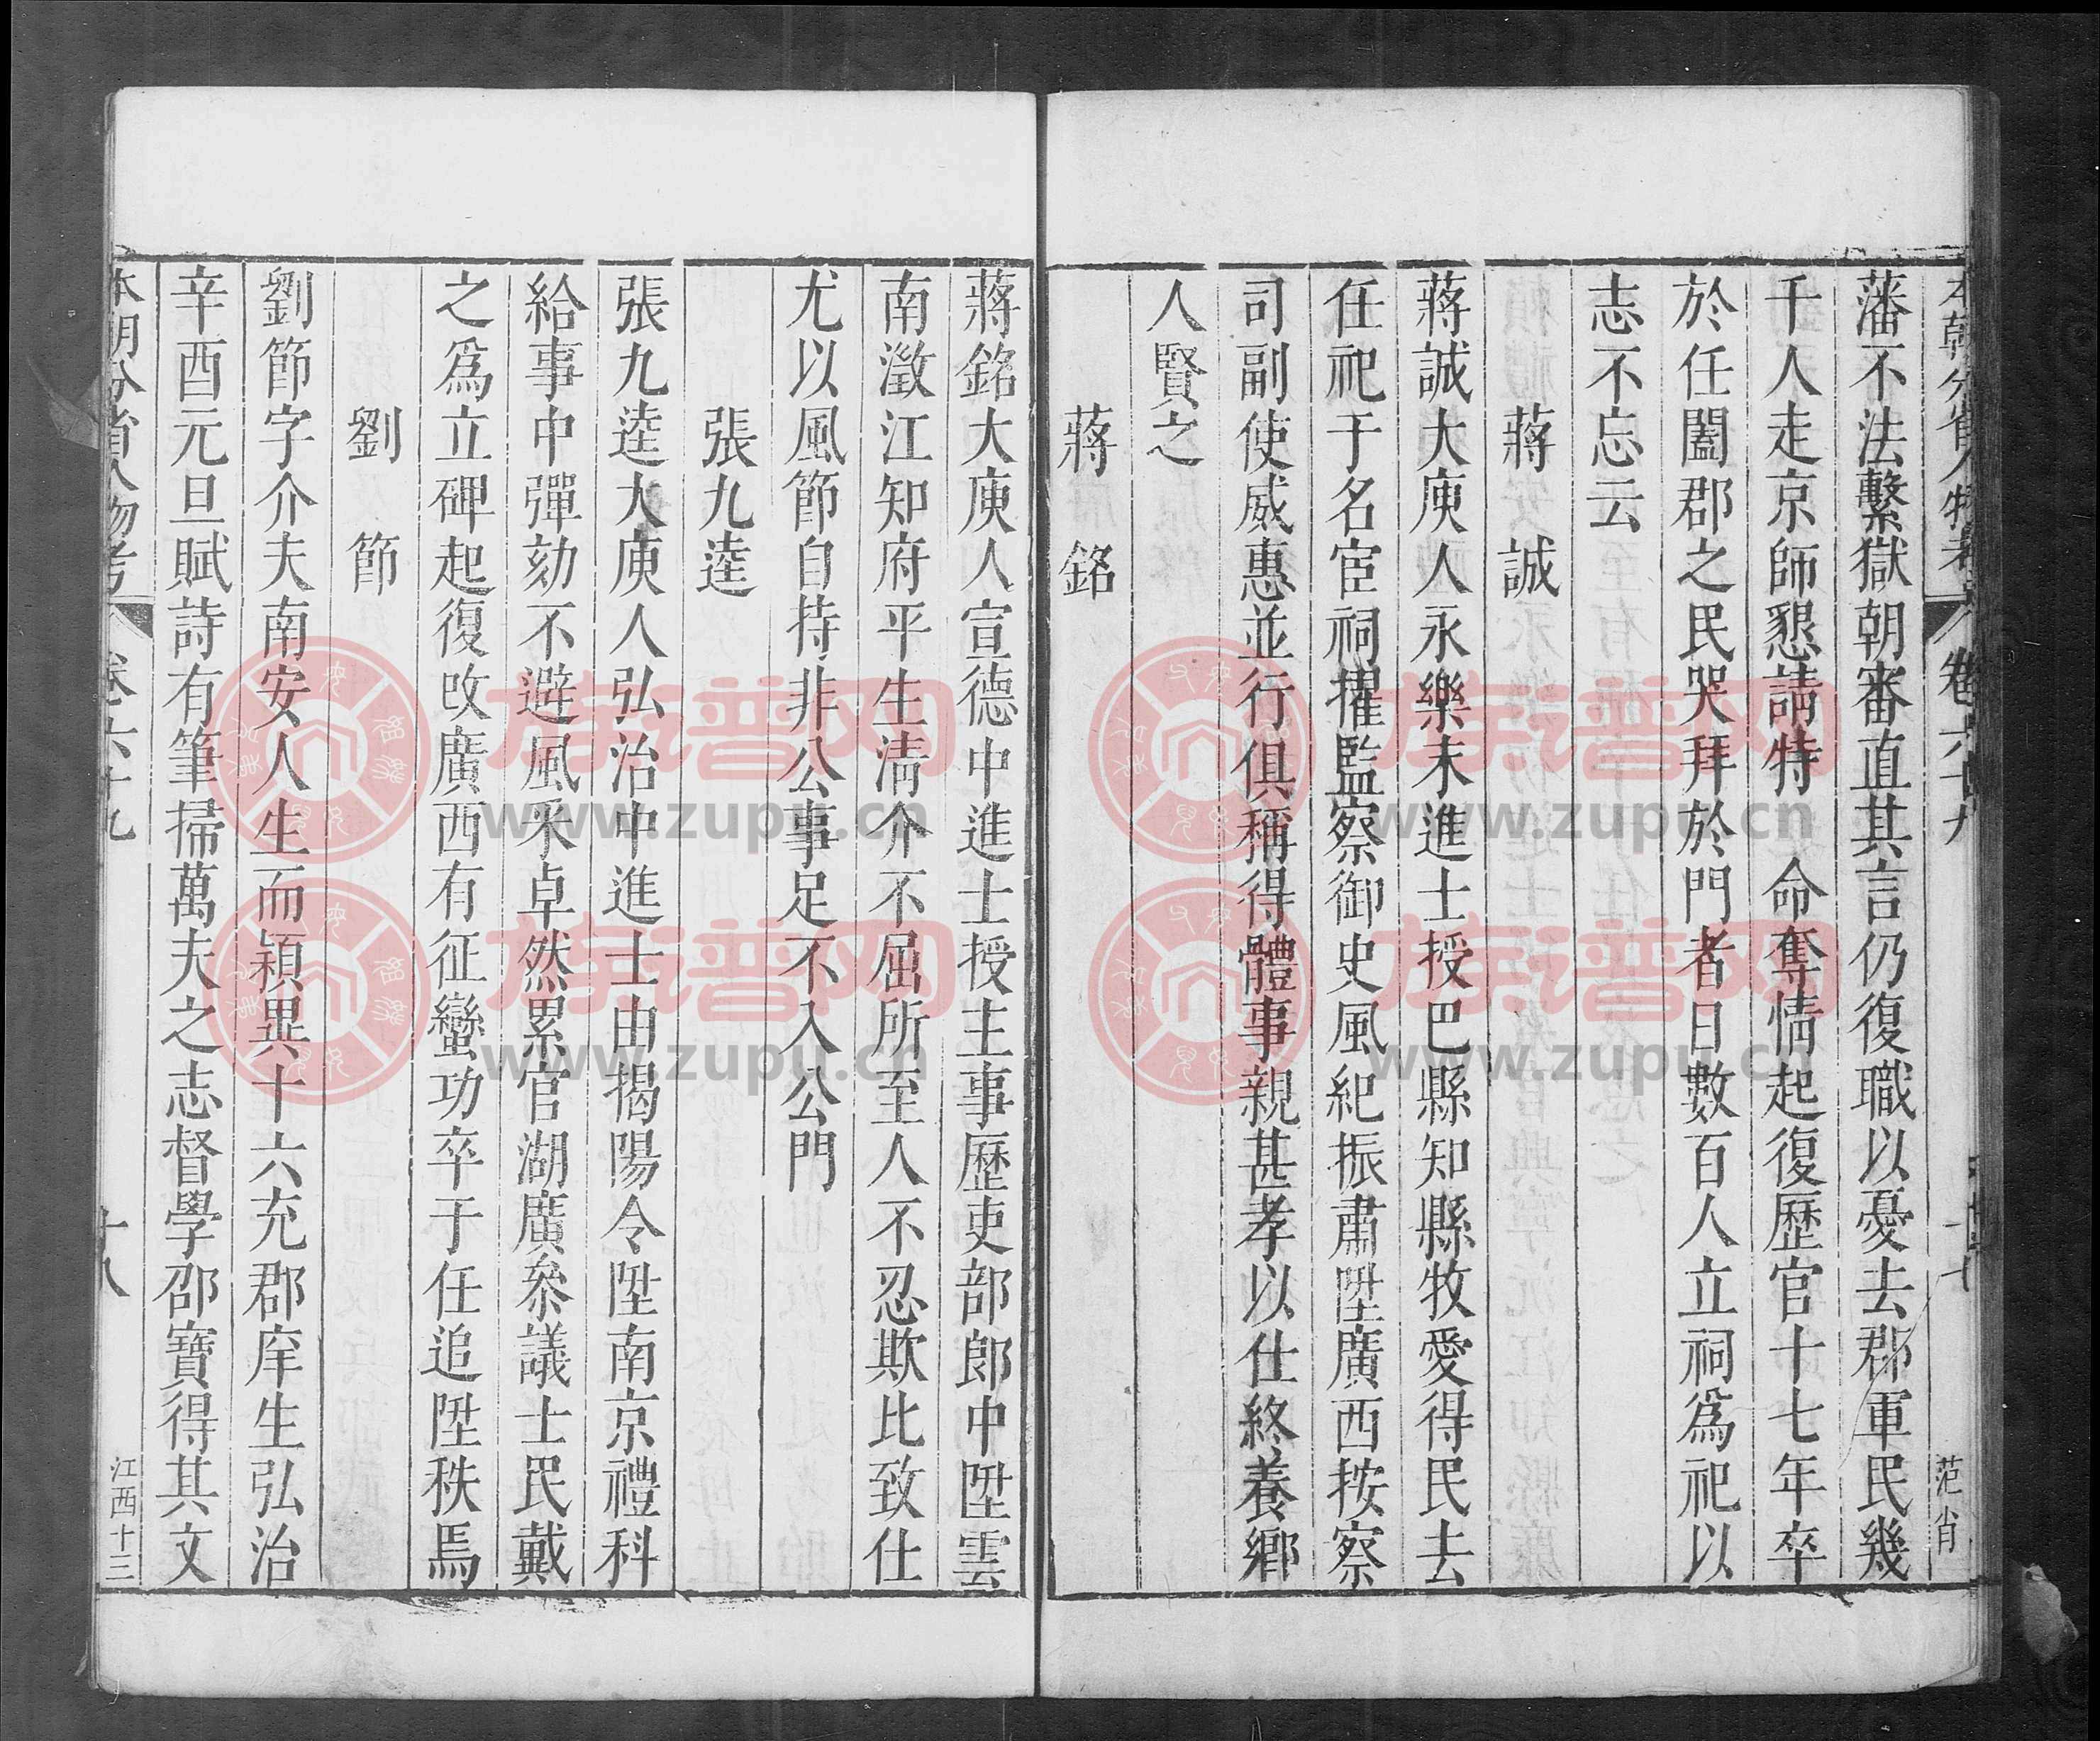 本朝分省人物考 卷六十九 十七 范肖
藩不法繫獄朝審直其言仍復職以憂去郡軍民幾
千人走京師懇請特 命奪情起復歷官十七年卒
於任闔郡之民哭拜於門者日數百人立祠爲祀以
志不忘云
蔣誠
蔣誠大庾人永樂末進士授巴縣知縣牧愛得民去
任祀于名宦祠擢監察御史風紀振肅陞廣西按察
司副使威惠並行俱稱得體事親甚孝以仕終養鄉
人賢之
蔣銘
蔣銘大庾人宣德中進士授主事歷吏部郎中陞雲
南澂江知府平生清介不屈所至人不忍欺比致仕
尤以風節自持非公事足不入公門
張九逵
張九逵大庾人弘治中進士由揭陽令陞南京禮科
給事中彈劾不避風采卓然累官湖廣叅議士民戴
之爲立碑起復改廣西有征蠻功卒于任追陞秩焉
劉節
劉節字介夫南安人生而穎異十六充郡庠生弘治
辛酉元旦賦詩有筆掃萬夫之志督學邵寶得其文
本朝分省人物考 卷六十九 十八 江西十三
族谱网
www.zupu.cn
族谱网
www.zupu.cn
族谱网
www.zupu.cn
族谱网
www.zupu.cn